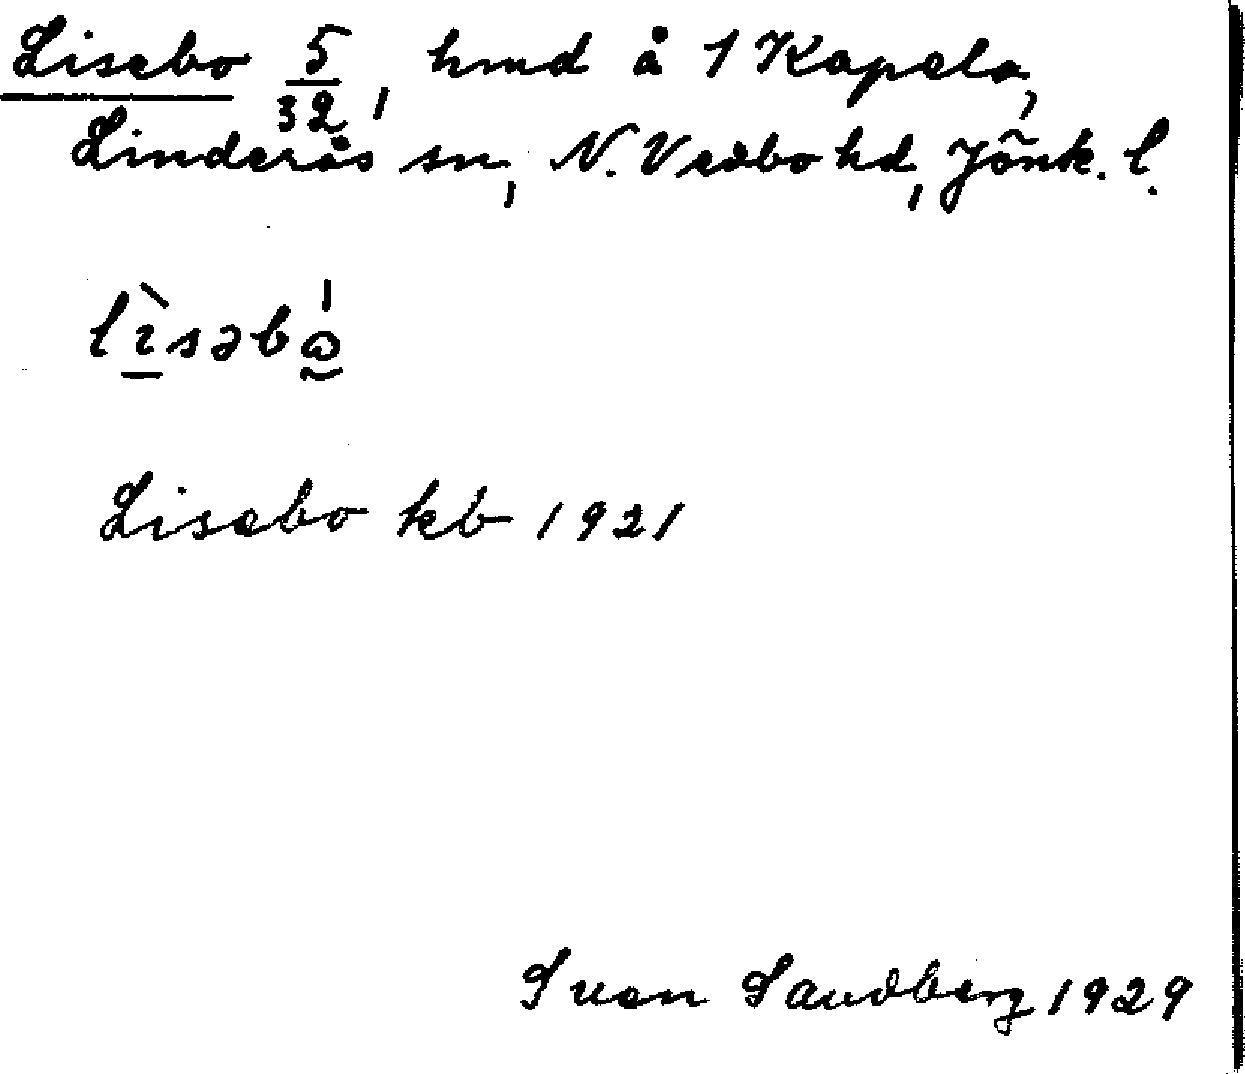 Lisebo 5/32, hmd å 1 Kapela,
Linderås sn, N. Vedbo hd, Jönk. l.
lìsəbω̰̍
Lisebo kb 1921
Sven Sandberg 1929